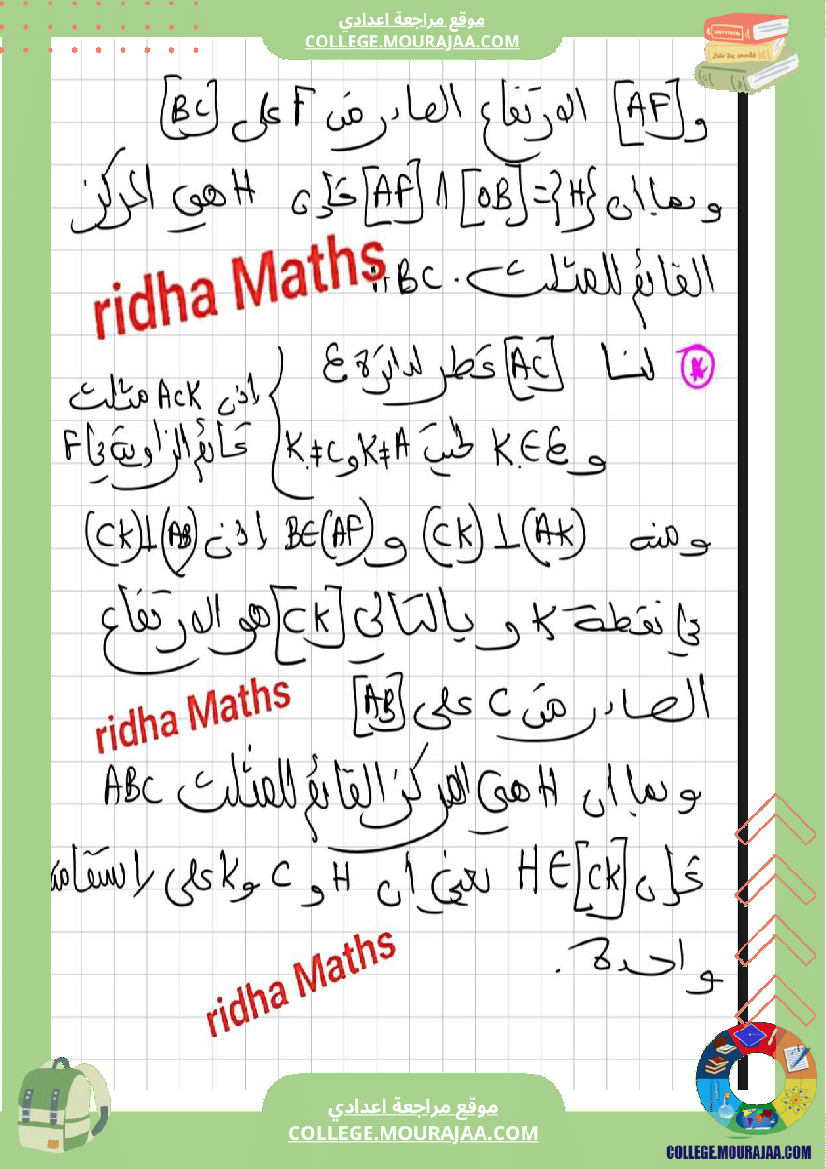 موقع مراجعة اعدادي
COLLEGE.MOURAJAA.COM
و [AF] الارتفاع الصادر من F على [BC]
وبما ان [AF] ∩ [OB] = {H} فإن H هي المركز
القائم للمثلث BC.
ridha Maths
* لنا [AC] قطر لدائرة ع
اذن ACK مثلث
و K∈ع حيث K≠A و K≠C
قائم الزاوية في F
ومنه (AK) ⊥ (CK) و B∈(AF) اذن (AB)⊥(CK)
في نقطة K و بالتالي [CK] هو الارتفاع
الصادر من C على [AB]
ridha Maths
وبما ان H هي المركز القائم للمثلث ABC
فإن H∈[CK] يعني أن H و C و K على استقامة
واحدة.
ridha Maths
موقع مراجعة اعدادي
COLLEGE.MOURAJAA.COM
COLLEGE.MOURAJAA.COM